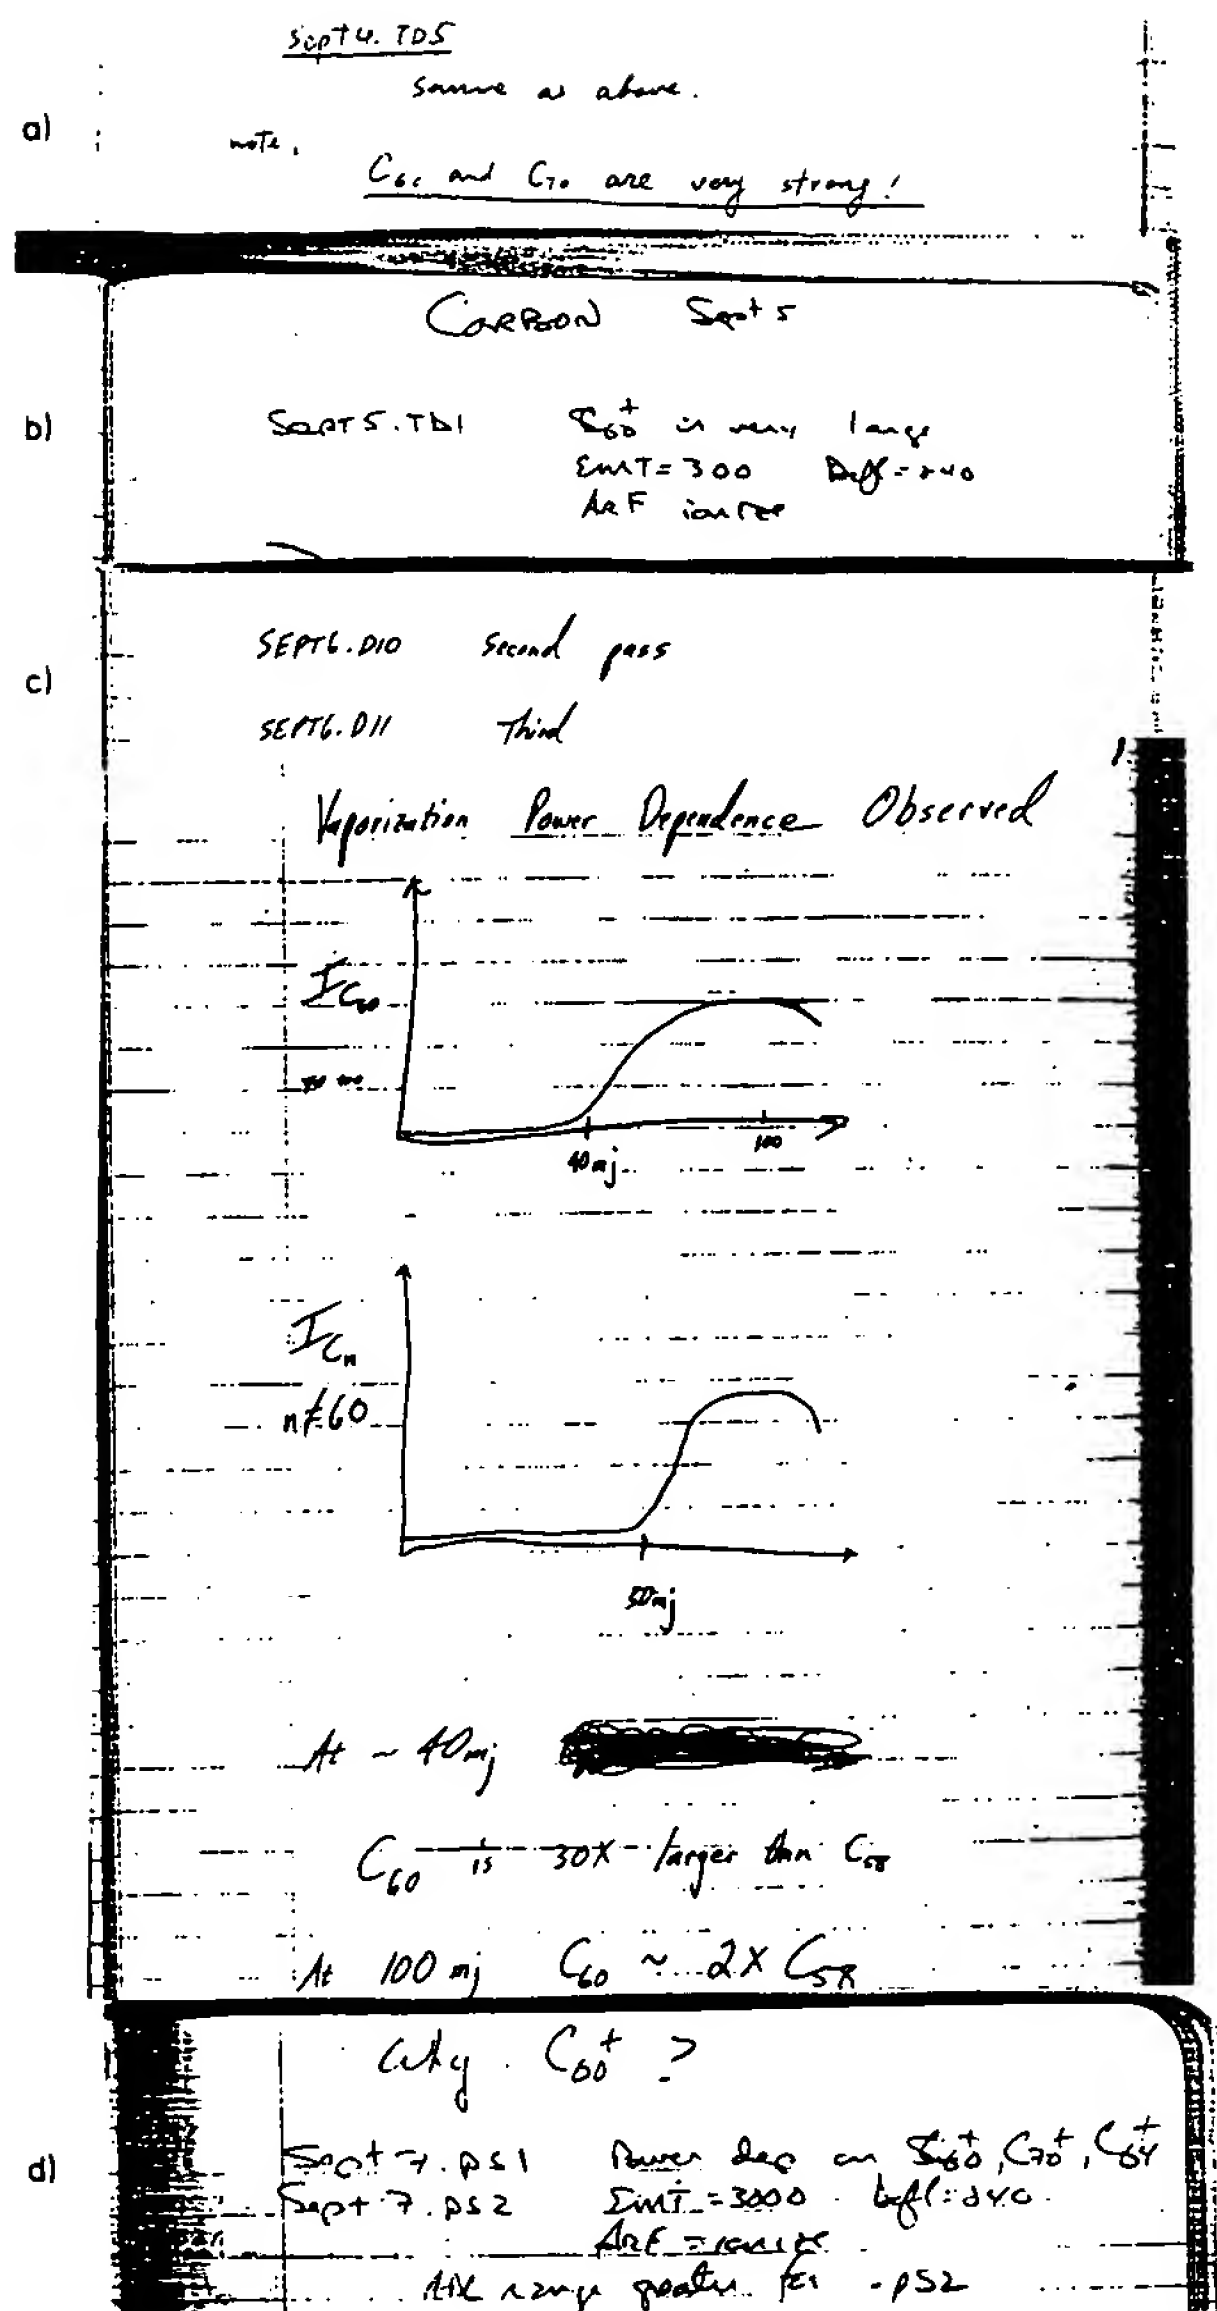 Sept 4. TD5
a)
Same as above.
note,
C60 and C70 are very strong!
CARBON Sept 5
b)
SEPT 5. TD1 C60+ is very large
EmT = 300 Defl = 240
ArF ionize
c)
SEPT6.D10 Second pass
SEPT6.D11 Third
Vaporization Power Dependence Observed
I C60
40mj 100
I Cn
n≠60
50mj
At ~ 40mj
C60 is 30X larger than C58
At 100 mj C60 ~ 2X C58
Why C60+ ?
d)
Sept 7. PS1 Power dep on C60+, C70+, C54+
Sept 7. PS2 EmT = 3000 Defl = 240
ArF = ionize
range greater for .PS2